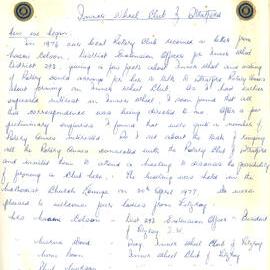 Inner Wheel Club of Stratford
how we began.
In 1976 our local Rotary Club received a letter from
District Extension Officer for Inner Wheel
District 293, giving a few facts about Inner Wheel and asking
if Rotary would arrange for her to talk to Stratford Rotary
about forming an Inner Wheel Club. As I had earlier
expressed interest in Inner Wheel, I soon found that all
this correspondence was being directed to me. After a few
preliminary enquiries I found that quite a number of
Rotary were interested. I set about the task of ringing
all the Rotary connected with the Rotary Club of Stratford
and invited them to attend a meeting to discuss the possibility
of forming a Club here. The meeting was held in the
Methodist Church Lounge on April 1977. We were
pleased to welcome four ladies from Fitzroy.
Extension Officer - President
of Fitzroy I.W.
Inner Wheel Club of Fitzroy
Inner Wheel Club of Fitzroy